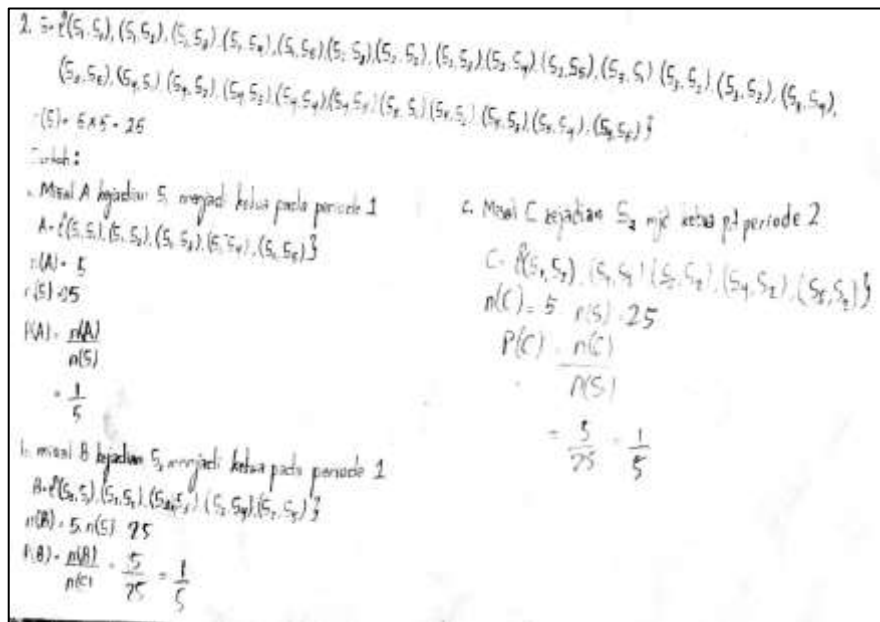 2. S = {(S₁,S₁), (S₁,S₂), (S₁,S₃), (S₁,S₄), (S₁,S₅), (S₂,S₁), (S₂,S₂), (S₂,S₃), (S₂,S₄), (S₂,S₅), (S₃,S₁), (S₃,S₂), (S₃,S₃), (S₃,S₄),
(S₃,S₅), (S₄,S₁), (S₄,S₂), (S₄,S₃), (S₄,S₄), (S₄,S₅), (S₅,S₁), (S₅,S₂), (S₅,S₃), (S₅,S₄), (S₅,S₅)}
n(S) = 5 x 5 = 25
Misal A kejadian S₁ menjadi ketua pada periode 1
A = {(S₁,S₁), (S₁,S₂), (S₁,S₃), (S₁,S₄), (S₁,S₅)}
n(A) = 5
n(S) = 25
P(A) = n(A)/n(S)
= 1/5
b. misal B kejadian S₂ menjadi ketua pada periode 1
B = {(S₂,S₁), (S₂,S₂), (S₂,S₃), (S₂,S₄), (S₂,S₅)}
n(B) = 5, n(S) 25
P(B) = n(B)/n(S) = 5/25 = 1/5
c. Misal C kejadian S₂ mjd ketua pd periode 2
C = {(S₁,S₂), (S₂,S₂), (S₃,S₂), (S₄,S₂), (S₅,S₂)}
n(C) = 5 n(S) = 25
P(C) = n(C)/n(S)
= 5/25 = 1/5